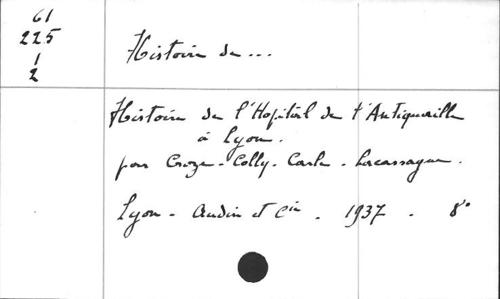 61
225
1
2
Histoire de ...
Histoire de l'Hopital de l'Antiquaille
à Lyon.
par Croze - Colly - Carle - Lacassagne.
Lyon - Audin et Cie . 1937 . 8°